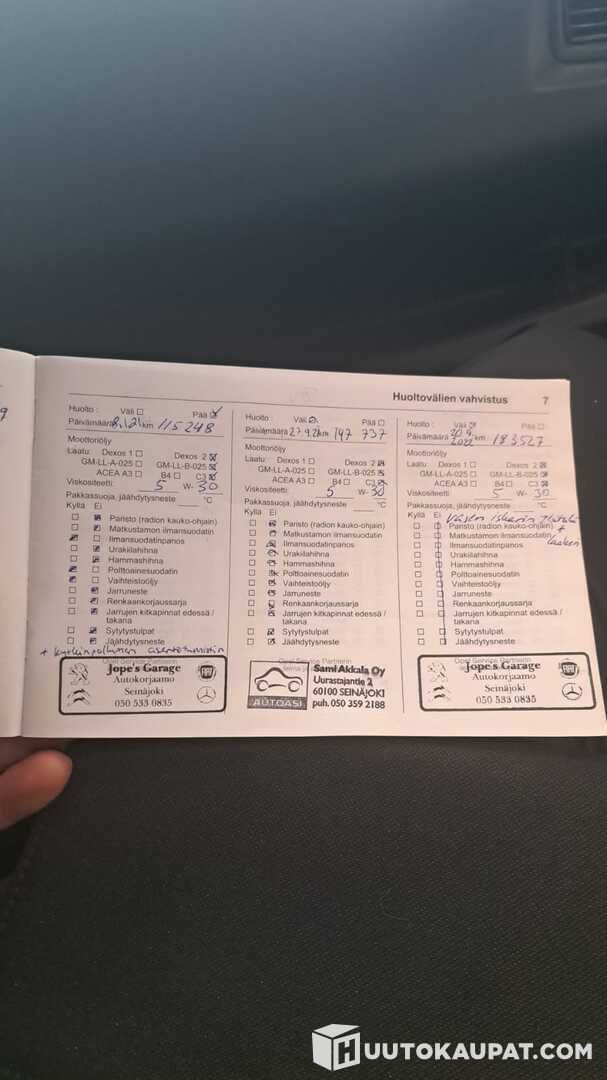 Huoltovälien vahvistus 7
Huolto : Väli Pää
Päivämäärä km 115248
Moottoriöljy
Laatu: Dexos 1 Dexos 2
GM-LL-A-025 GM-LL-B-025
ACEA A3 B4 C3
Viskositeetti: 5 W- 30
Pakkassuoja, jäähdytysneste °C
Kyllä Ei
Paristo (radion kauko-ohjain)
Matkustamon ilmansuodatin
Ilmansuodatinpanos
Urakiilahihna
Hammashihna
Polttoainesuodatin
Vaihteistoöljy
Jarruneste
Renkaankorjaussarja
Jarrujen kitkapinnat edessä /
takana
Sytytystulpat
Jäähdytysneste
+ kytkinpolkimen asentotunnistin
Opel Service Partnerin
Jope's Garage
Autokorjaamo
Seinäjoki
050 533 0835
Huolto : Väli Pää
Päivämäärä 27.9.21 km 147 737
Moottoriöljy
Laatu: Dexos 1 Dexos 2
GM-LL-A-025 GM-LL-B-025
ACEA A3 B4 C3
Viskositeetti: 5 W- 30
Pakkassuoja, jäähdytysneste °C
Kyllä Ei
Paristo (radion kauko-ohjain)
Matkustamon ilmansuodatin
Ilmansuodatinpanos
Urakiilahihna
Hammashihna
Polttoainesuodatin
Vaihteistoöljy
Jarruneste
Renkaankorjaussarja
Jarrujen kitkapinnat edessä /
takana
Sytytystulpat
Jäähdytysneste
Opel Service Partnerin
AUTOASI
Sami Akkala Oy
Uurastajantie 2
60100 SEINÄJOKI
puh. 050 359 2188
Huolto : Väli Pää
Päivämäärä 20.9. 2022 km 183527
Moottoriöljy
Laatu: Dexos 1 Dexos 2
GM-LL-A-025 GM-LL-B-025
ACEA A3 B4 C3
Viskositeetti: 5 W- 30
Pakkassuoja, jäähdytysneste °C
Kyllä Ei
Paristo (radion kauko-ohjain)
Matkustamon ilmansuodatin
Ilmansuodatinpanos
Urakiilahihna
Hammashihna
Polttoainesuodatin
Vaihteistoöljy
Jarruneste
Renkaankorjaussarja
Jarrujen kitkapinnat edessä /
takana
Sytytystulpat
Jäähdytysneste
Opel Service Partnerin
Jope's Garage
Autokorjaamo
Seinäjoki
050 533 0835
HUUTOKAUPAT.COM